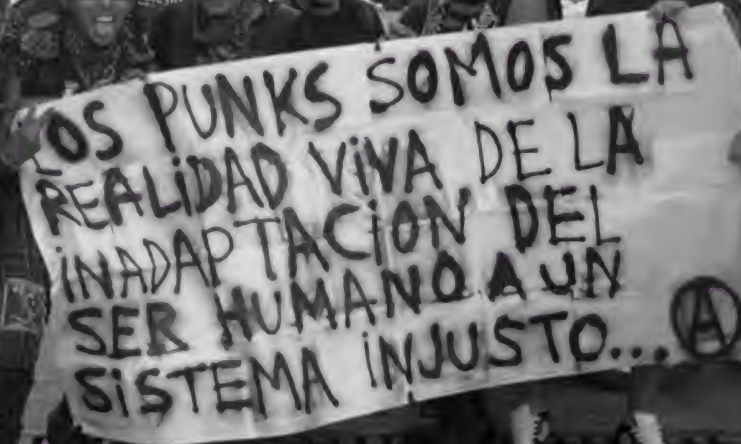 LOS PUNKS SOMOS LA
REALiDAD ViVA DE LA
iNADAPTACiON DEL
SER HUMANO A UN
SiSTEMA iNJUSTO... Ⓐ